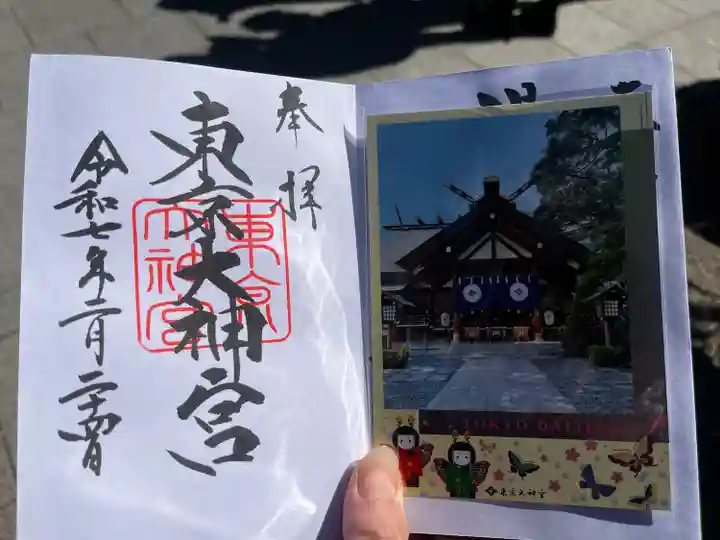 奉拝
東京大神宮
東京大神宮
令和七年二月二十四日
TOKYO DAI
東京大神宮